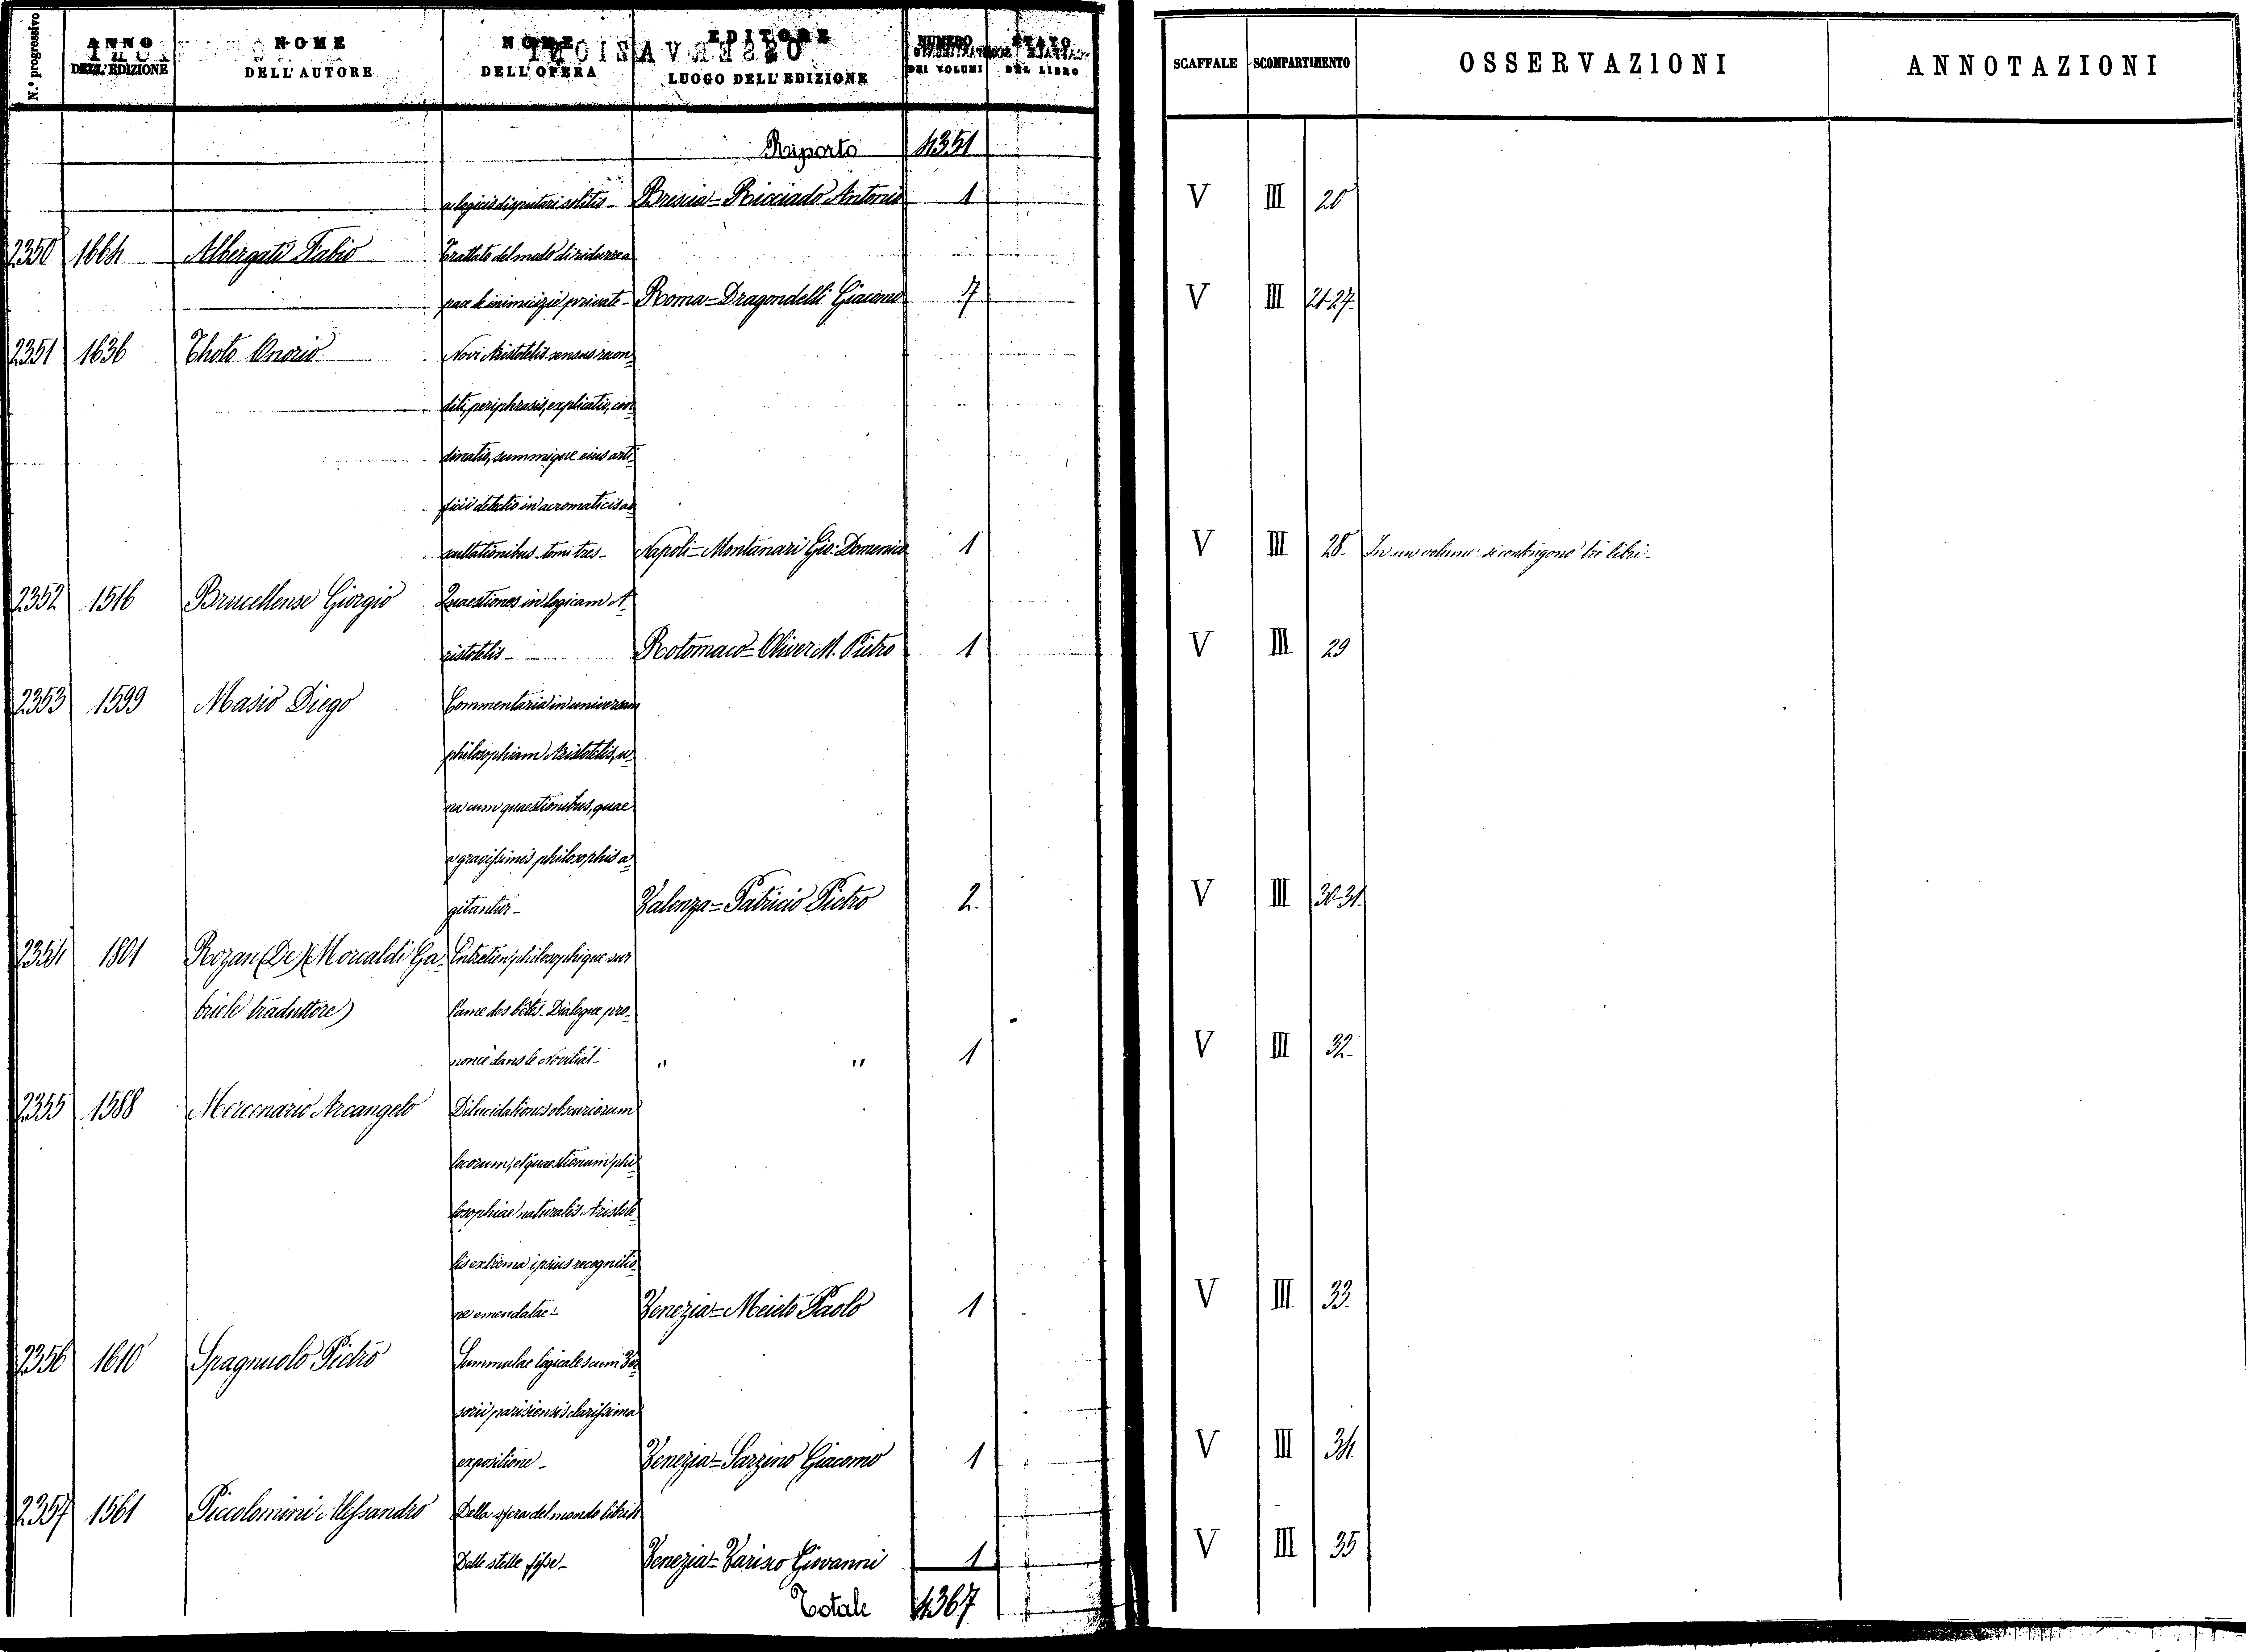 N.° progressivo | ANNO DELL'EDIZIONE | NOME DELL'AUTORE | NOME DELL'OPERA | EDITORE LUOGO DELL'EDIZIONE | NUMERO DEI VOLUMI | STATO DEL LIBRO | SCAFFALE | SCOMPARTIMENTO | OSSERVAZIONI | ANNOTAZIONI
Riporto 4351
a logicis disputari solitis - Brescia = Ricciado Antonio 1 V III 20
2350 1664 Albergati Fabio Trattato del modo di ridurre a
pace le inimicizie private - Roma = Dragondelli Giacomo 7 V III 21-27.
2351 1636 Thoto Onorio Novi Aristotelis sensus recon-
diti, periphrasis, explicatio, coor-
dinatio, summique eius arti-
ficii detectio in acromaticis au-
scultationibus tomi tres - Napoli = Montanari Gio: Domenico 1 V III 28. In un volume si contengono tre libri -
2352 1516 Brucellense Giorgio Quaestiones in logicam A-
ristotelis - Rotomaco = Oliver M. Pietro 1 V III 29
2353 1599 Masio Diego Commentaria in universam
philosophiam Aristotelis, u-
na cum quaestionibus, quae
a gravissimis philosophis a-
gitantur - Valenza = Patricio Pietro 2. V III 30-31.
2354 1801 Rozan (De) (Morcaldi Ga- Entretien philosophique sur
briele traduttore) l'ame des bêtes. Dialogue pro-
noncé dans le Novitiat - " " 1 V III 32.
2355 1588 Mercenario Arcangelo Dilucidationes obscuriorum
locorum, et quaestionum phi-
losophiae naturalis Aristote-
lis extrema ipsius recognitio-
ne emendatae - Venezia = Meieto Paolo 1 V III 33.
2356 1610 Spagnuolo Pietro Summulae logicales cum Ver-
sorii parisiensis clarissima
expositione - Venezia = Sarzino Giacomo 1 V III 34.
2357 1561 Piccolomini Alessandro Della sfera del mondo libri 4
Delle stelle fisse - Venezia = Varisco Giovanni 1 V III 35
Totale 4367